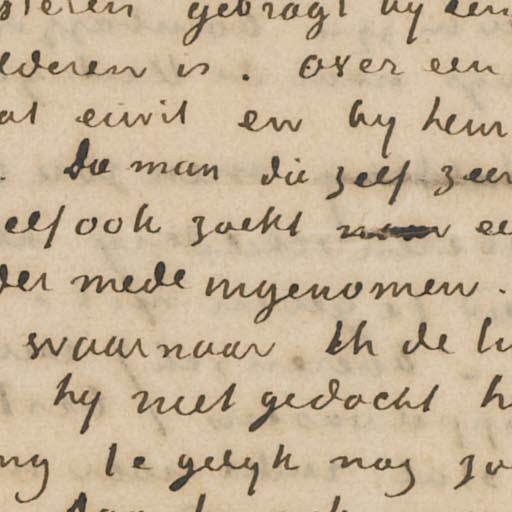 steren gebragt by een
deren is. over een
at eiwit en by heur
. De man die zelf zeer
elf ook zoekt ee
der mede ingenomen.
waarnaar ik de
hy niet gedacht h
ng te gelyk nog zo